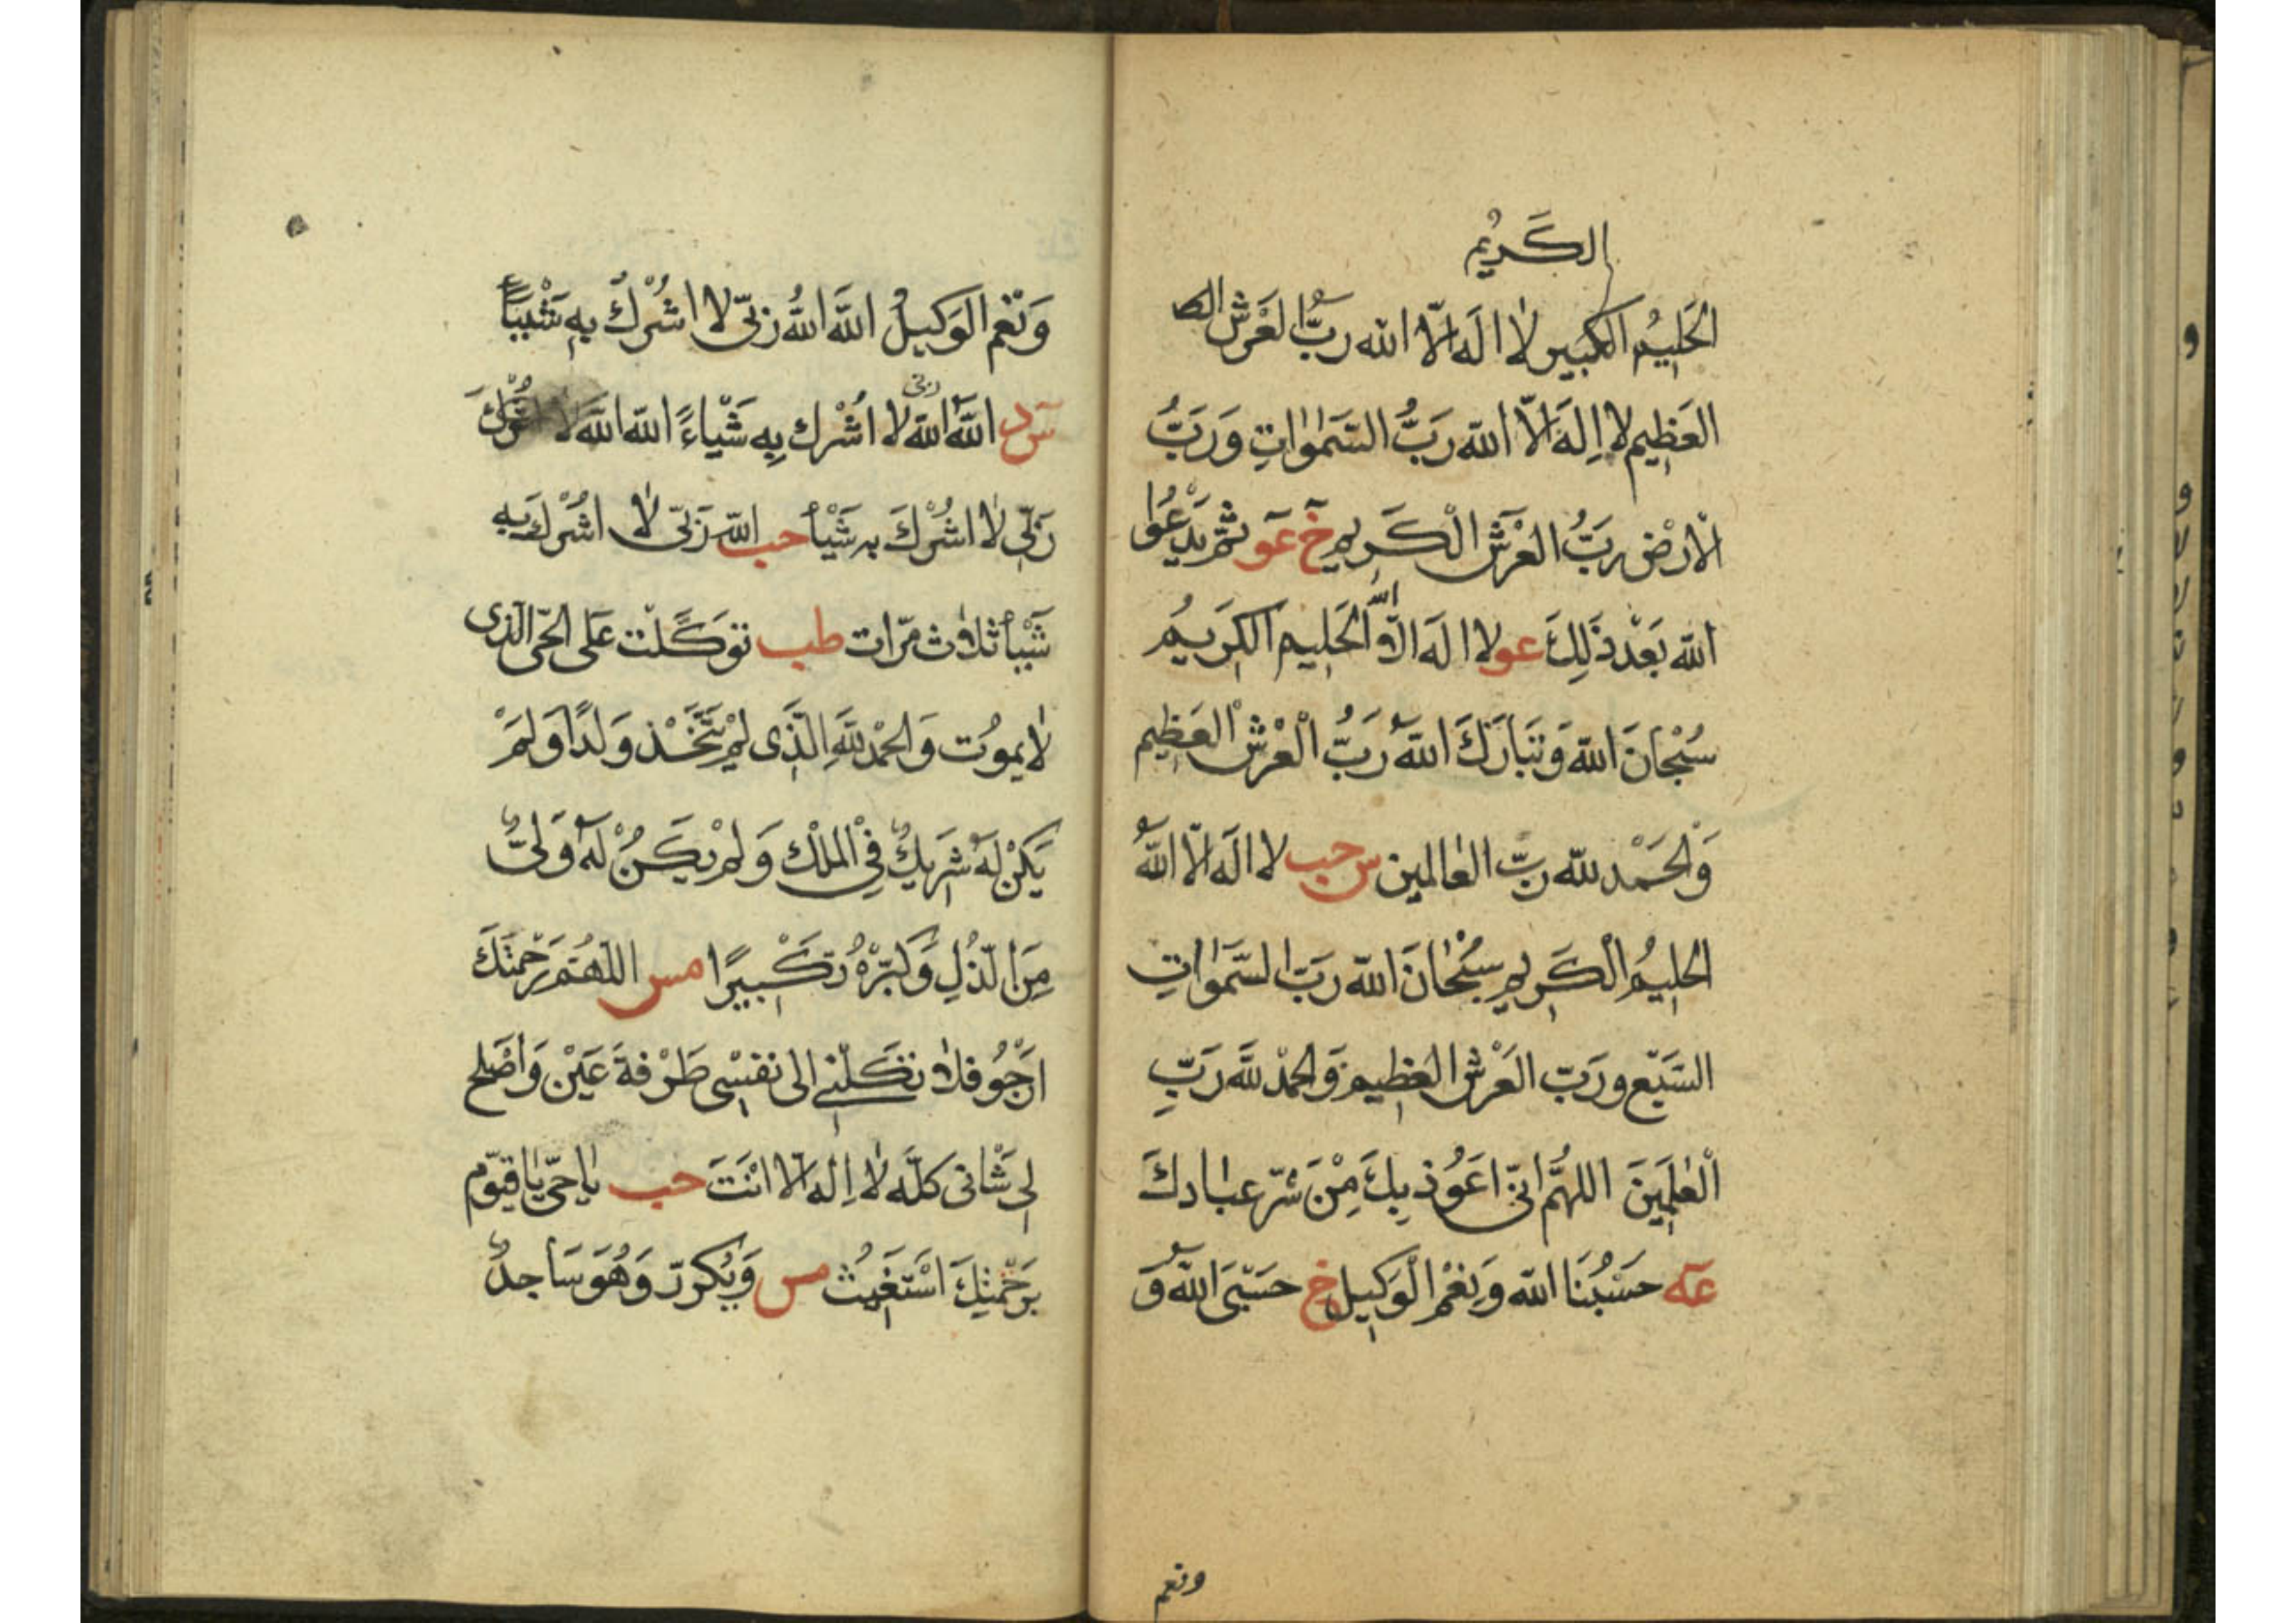 الكَريُم
الحَليِمُ الكبير لا اله الّا الله رَبُّ العَرْشِ الك
العَظِيم لا اِلهَ الّا الله رَبُّ السَّمٰوٰاتِ وَ رَبُّ
الْارَضْ رَبُّ العَرْش الْكَريم خ عو ثمّ يَدْعُوا
الله بَعْد ذَلِكَ عو لا اله الّا اللهُ الحَليِم الكَريِمُ
سُبْحانَ الله وَ تَبَارَكَ اللهُ رَبُّ الْعَرْشْ العَظِيم
وَالحَمْد لله رَبّ العٰالمين س حب لا اله الّا اللهُ
الحليِمُ الْكَريم سُبْحٰانَ الله رَبّ السَّمٰوٰاتِ
السَبْع ورَبّ العَرْش العَظيِم وَالحمْد للهَ رَبِّ
الْعٰلَمِينَ اللهُمَّ انّى اعَوُذ بِكَ مِنْ شرّ عبٰادكَ
عَه حَسْبُنَا الله وَنِعْم الْوَكِيل خ حَسْبِىَ اللهُ وَ
ونعم
وَنْعِم الوَكيلُ اللهَ اللهُ رَبّى لا اشُرْكُ بِهِ شَيْئاً
سَ د اللهَ الله ربى لا اُشْرك بِهِ شَيْاءً الله اللهَ لا اشُرْكَ
رَبِّى لا اشُرْكَ به شَيْأ حب الله رَبّى لا اشُرْك بِه
شَيْأ ثلاث مرّات طب توَكَّلْت عَلى الحىّ الّذى
لا يموُت وَ الحمْد للهِ الَّذَى لم يَتَّخْذ وَلَدًا وَلَمْ
يَكنْ لهَ شَريكُ فِى الملْك وَ لمْ يَكنُْ لَهُ وَلىُّ
مِنَ الذّلِ وَ كَبِّرْهُ تكَْبيرًا مس اللهُمّ رَحْمتكَ
ارْجُو فلا تكَلْنى الى نفسْى طَرْفةَ عَيْن وَ اصْلح
لى شَانى كلَّه لا اِله الّا انْتَ حب يٰا حىّ يٰا قيّوم
برَحْمتِكَ اسْتَغيثُ مس وَيُكررّ وَهُوَ سَاجدُ